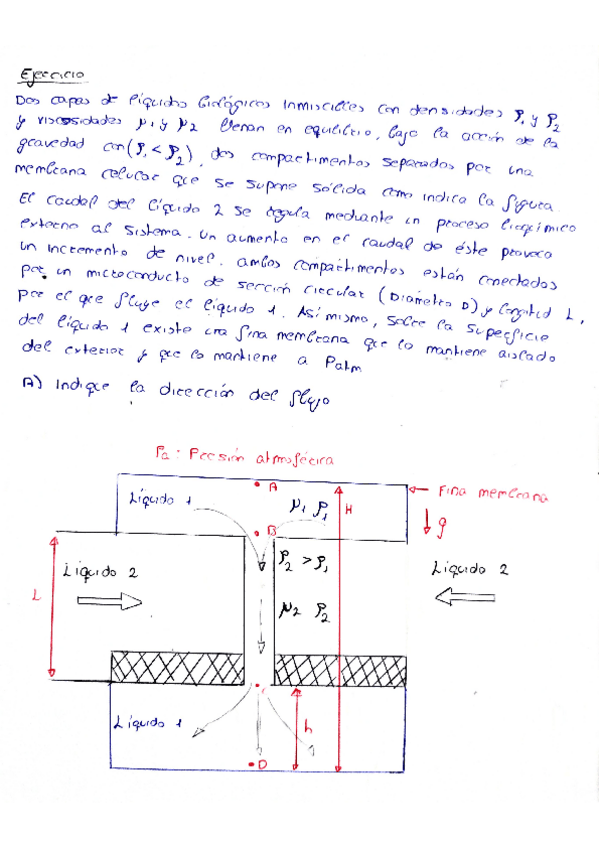 Ejercicio
Dos capas de líquidos biológicos inmiscibles con densidades ρ₁ y ρ₂
y viscosidades μ₁ y μ₂ llenan en equilibrio, bajo la acción de la
gravedad con (ρ₁ < ρ₂), dos compartimentos separados por una
membrana celular que se supone sólida como indica la figura
El caudal del líquido 2 se regula mediante un proceso bioquímico
externo al sistema. Un aumento en el caudal de éste provoca
un incremento de nivel. Ambos compartimentos están conectados
por un microconducto de sección circular (Diámetro D) y longitud L,
por el que fluye el líquido 1. Así mismo, sobre la superficie
del líquido 1 existe una fina membrana que lo mantiene aislado
del exterior y que lo mantiene a Patm
A) Indique la dirección del flujo
Pa: Presión atmosférica
A
Fina membrana
Líquido 1
μ₁ ρ₁
H
g
B
ρ₂ > ρ₁
Líquido 2
Líquido 2
L
μ₂ ρ₂
C
Líquido 1
h
D